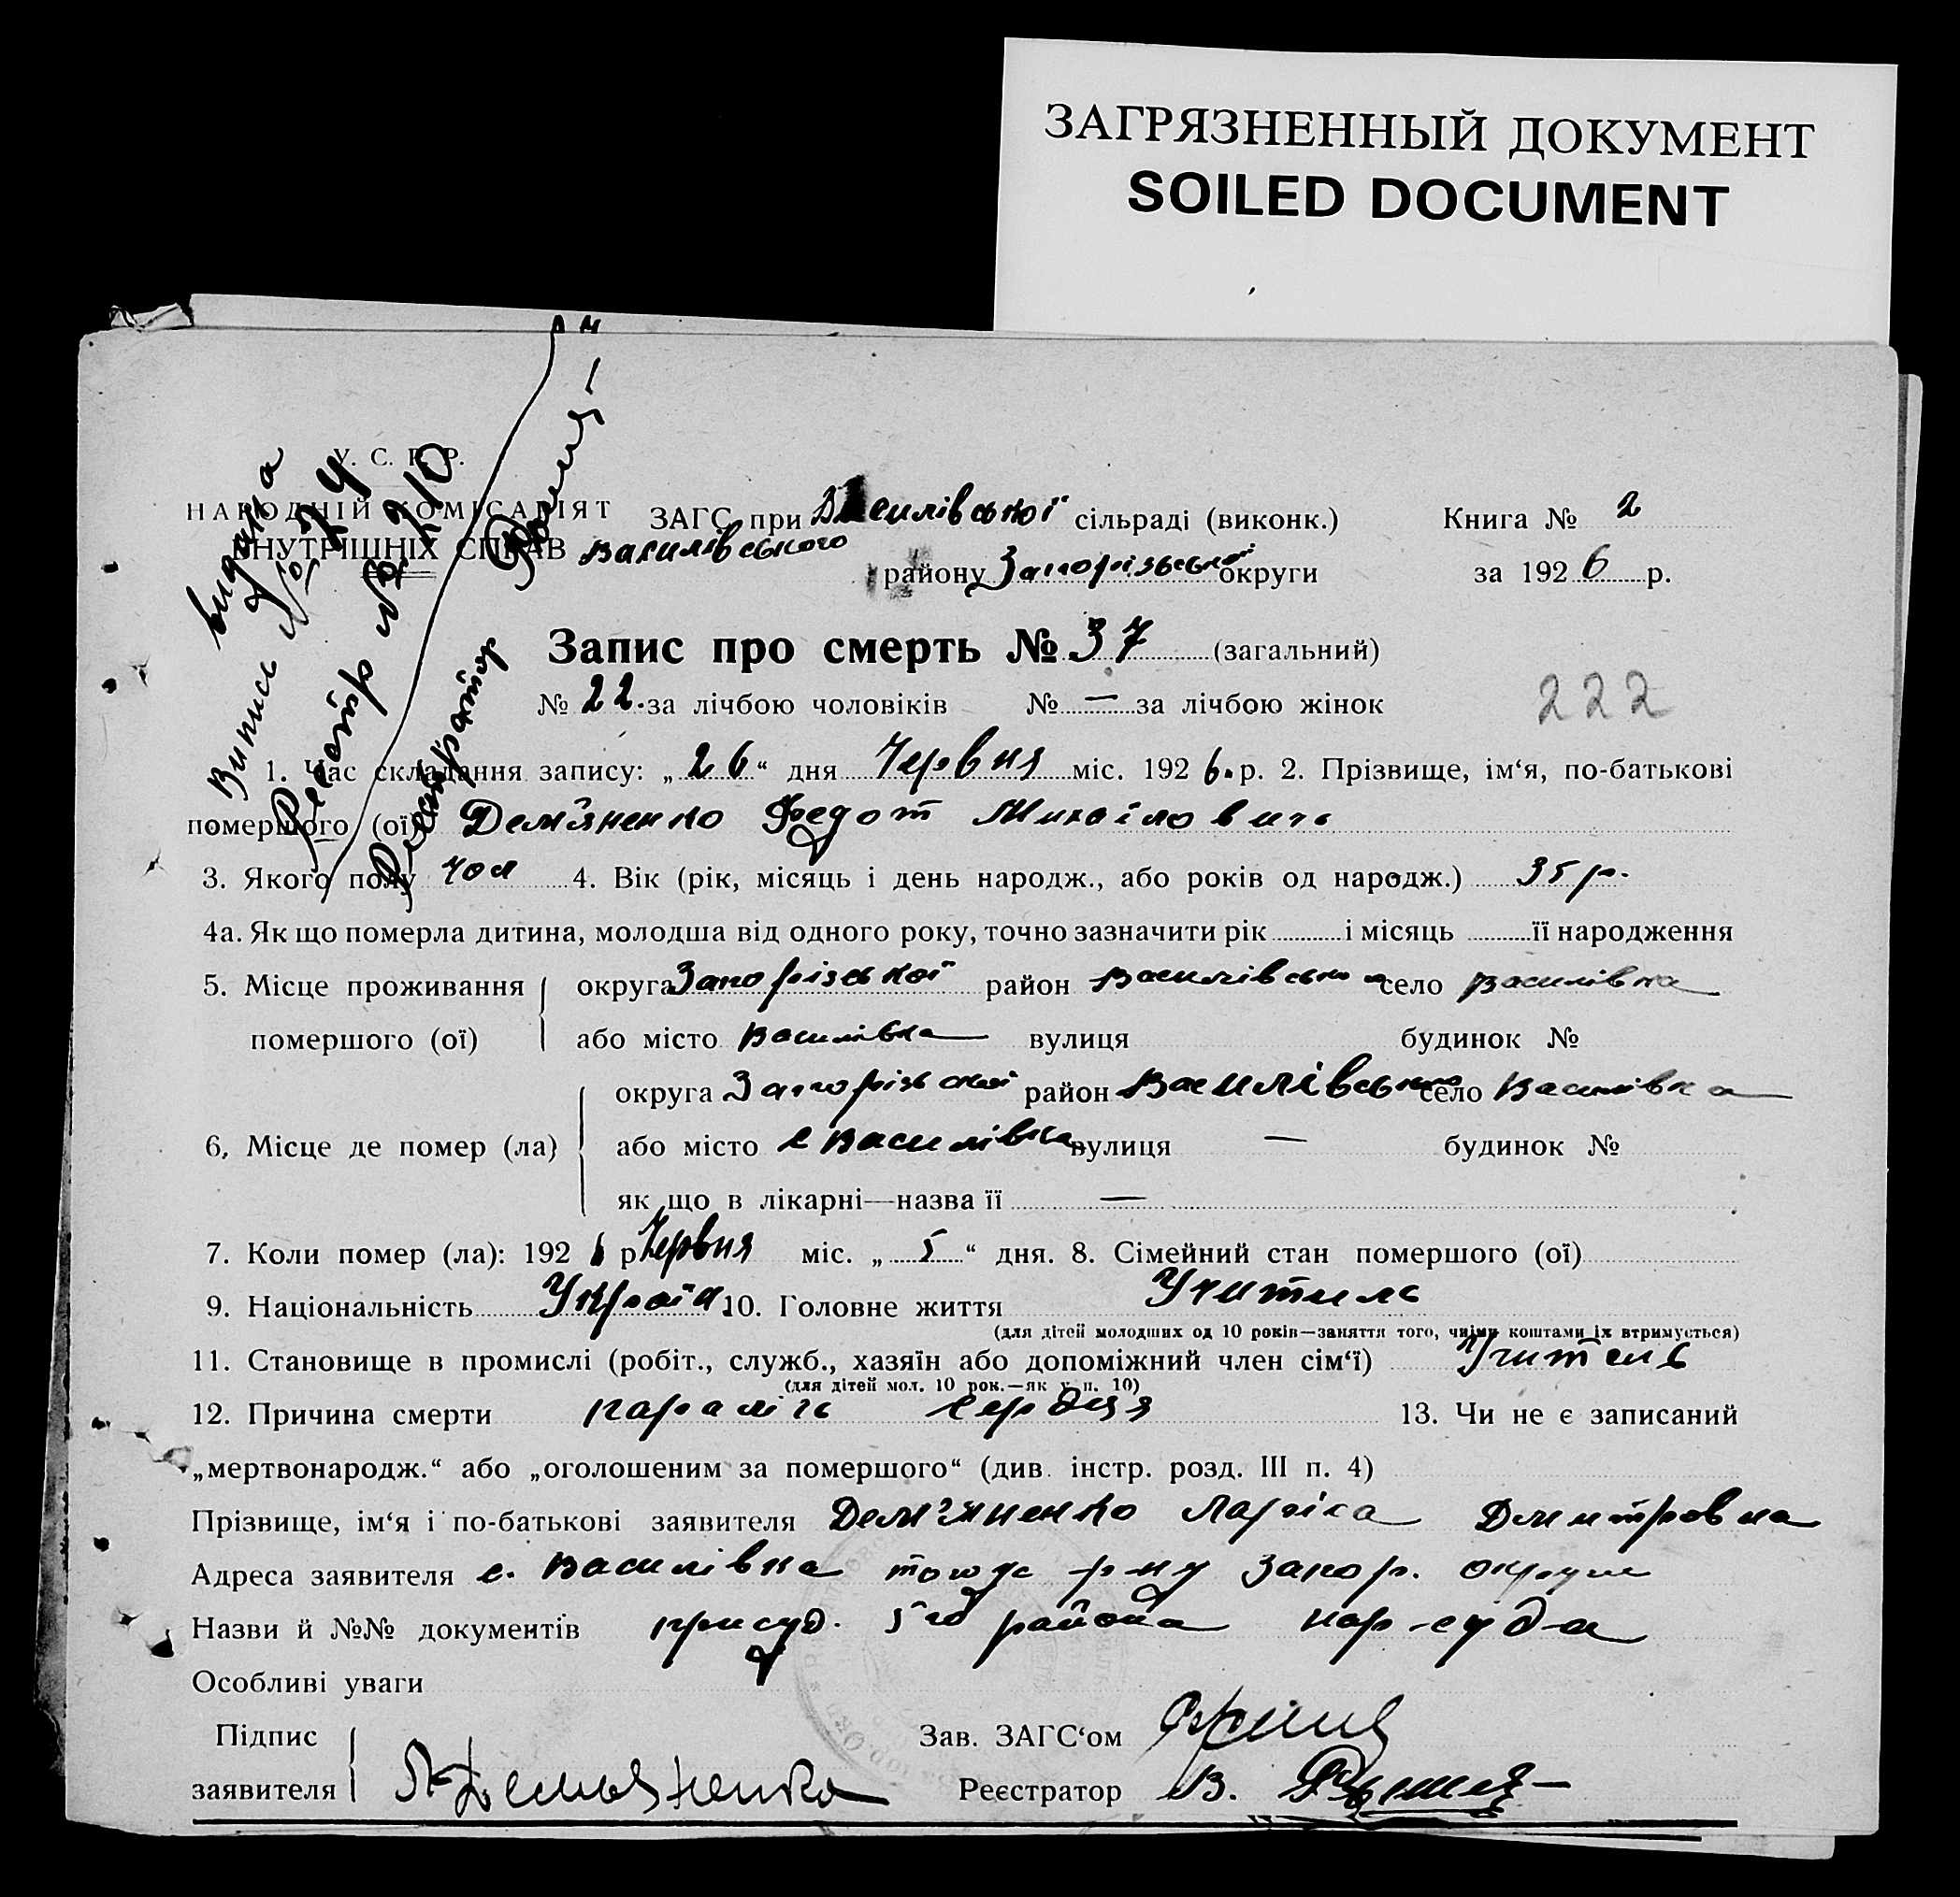 ЗАГРЯЗНЕННЫЙ ДОКУМЕНТ
SOILED DOCUMENT
видана
Випись № 74
Реєстр № 210
Реєстратор
У. С. Р. Р.
НАРОДНІЙ КОМІСАРІЯТ
ВНУТРІШНІХ СПРАВ
ЗАГС при Василівської сільраді (виконк.) Книга № 2
Василівського району Запорізької округи за 1926 р.
Запис про смерть № 37 (загальний)
№ 22. за лічбою чоловіків № — за лічбою жінок
222
1. Час складання запису: „26“ дня Червня міс. 1926. р. 2. Прізвище, ім‘я, по-батькові
помершого (ої) Дем'яненко Федот Михайлович
3. Якого полу чол 4. Вік (рік, місяць і день народж., або років од народж.) 35 р.
4а. Як що померла дитина, молодша від одного року, точно зазначити рік і місяць її народження
5. Місце проживання округа Запорізької район Василівсько село Василівка
помершого (ої) або місто Василівка вулиця будинок №
округа Запорізької район Василівсько село Василівка
6, Місце де помер (ла) або місто с Василівка вулиця — будинок №
як що в лікарні—назва її —
7. Коли помер (ла): 1926 р Червня міс. „5“ дня. 8. Сімейний стан помершого (ої)
9. Національність Україн. 10. Головне життя Учитель
(для дітей молодших од 10 років—заняття того, чиїми коштами їх втримується)
11. Становище в промислі (робіт., служб., хазяїн або допоміжний член сім‘ї) Учитель
(для дітей мол. 10 рок.—як у п. 10)
12. Причина смерти параліч сердця 13. Чи не є записаний
„мертвонародж.“ або „оголошеним за помершого“ (див. інстр. розд. III п. 4)
Прізвище, ім‘я і по-батькові заявителя Дем'яненко Лариса Дмитровна
Адреса заявителя с. Василівка того ж р-ну Запор. округи
Назви й №№ документів присуд. 5го района нар-суда
Особливі уваги
Підпис Зав. ЗАГС‘ом
заявителя Л. Демьяненко Реєстратор В.